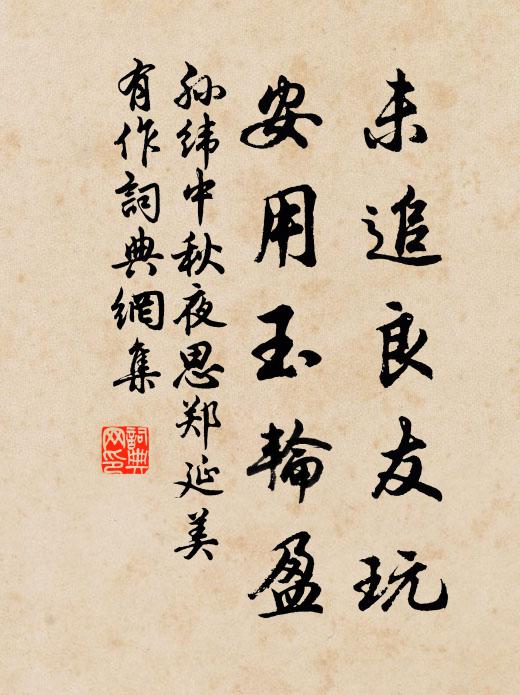 未追良友玩
安用玉輪盈
孙緯中秋夜思郑延美
有作詞典網集
詞典网印